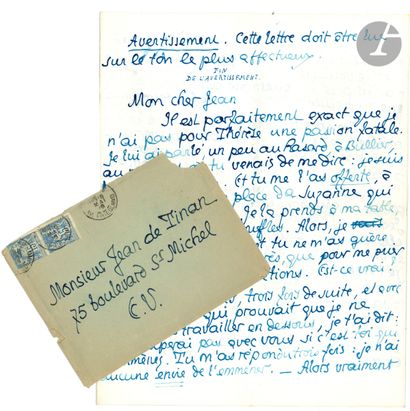 Avertissement. Cette lettre doit être lue
sur le ton le plus affectueux.
FIN
DE L'AVERTISSEMENT.
Mon cher Jean
Il est parfaitement exact que je
n'ai pas pour Thérèse une passion fatale.
Je lui ai parlé un peu au hasard à Bullier,
tu venais de me dire : je suis
Et tu me l'as offerte, à
place de Suzanne qui
Je la prends à ma table,
Alors, je
et tu ne m'as guère
que pour me punir
Est-ce vrai?
trois fois de suite, et avec
qui prouvait que je ne
travailler en dessous, je t'ai dit:
pas avec vous si c'est toi qui
emmènes. Tu m'as répondu trois fois : je n'ai
aucune envie de l'emmener. — Alors vraiment
Monsieur Jean de Tinan
75 boulevard St Michel
E.V.